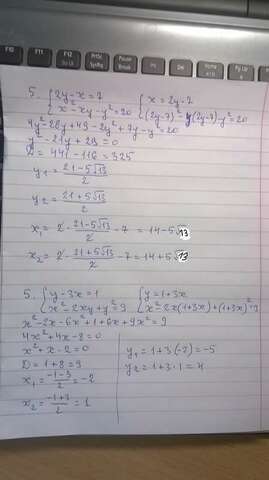 F10 F11 F12 PrtSc SysRq Scroll Lock Pause Break Ins Home Pg Up
5. {2y-x=7 {x=2y-7
{x²-xy-y²=20 {(2y-7)²-y(2y-7)-y²=20
4y²-28y+49-2y²+7y-y²=20
y²-21y+29=0
D=441-116=325
y₁=(21-5√13)/2
y₂=(21+5√13)/2
x₁=2·(21-5√13)/2-7=14-5√13
x₂=2·(21+5√13)/2-7=14+5√13
5. {y-3x=1 {y=1+3x
{x²-2xy+y²=9 {x²-2x(1+3x)+(1+3x)²=9
x²-2x-6x²+1+6x+9x²=9
4x²+4x-8=0
x²+x-2=0
D=1+8=9
x₁=(-1-3)/2=-2
x₂=(-1+3)/2=1
y₁=1+3(-2)=-5
y₂=1+3·1=4